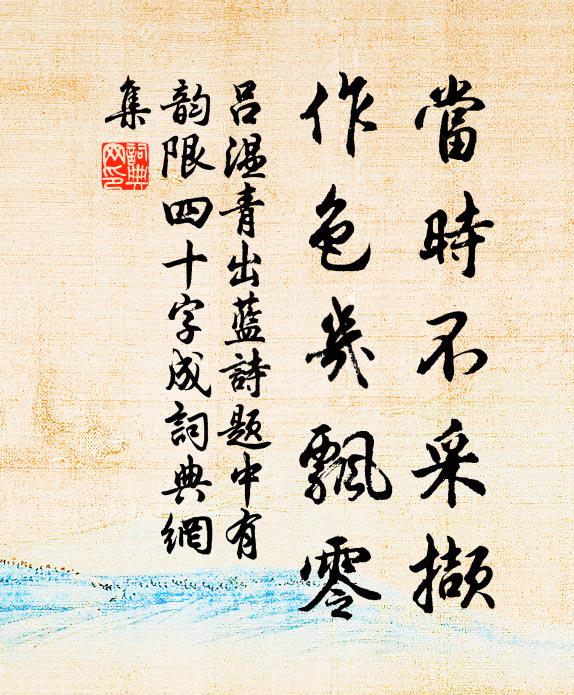 當時不采擷
作色幾飄零
吕溫青出藍詩題中有
韵限四十字成詞典網
集
詞典網印